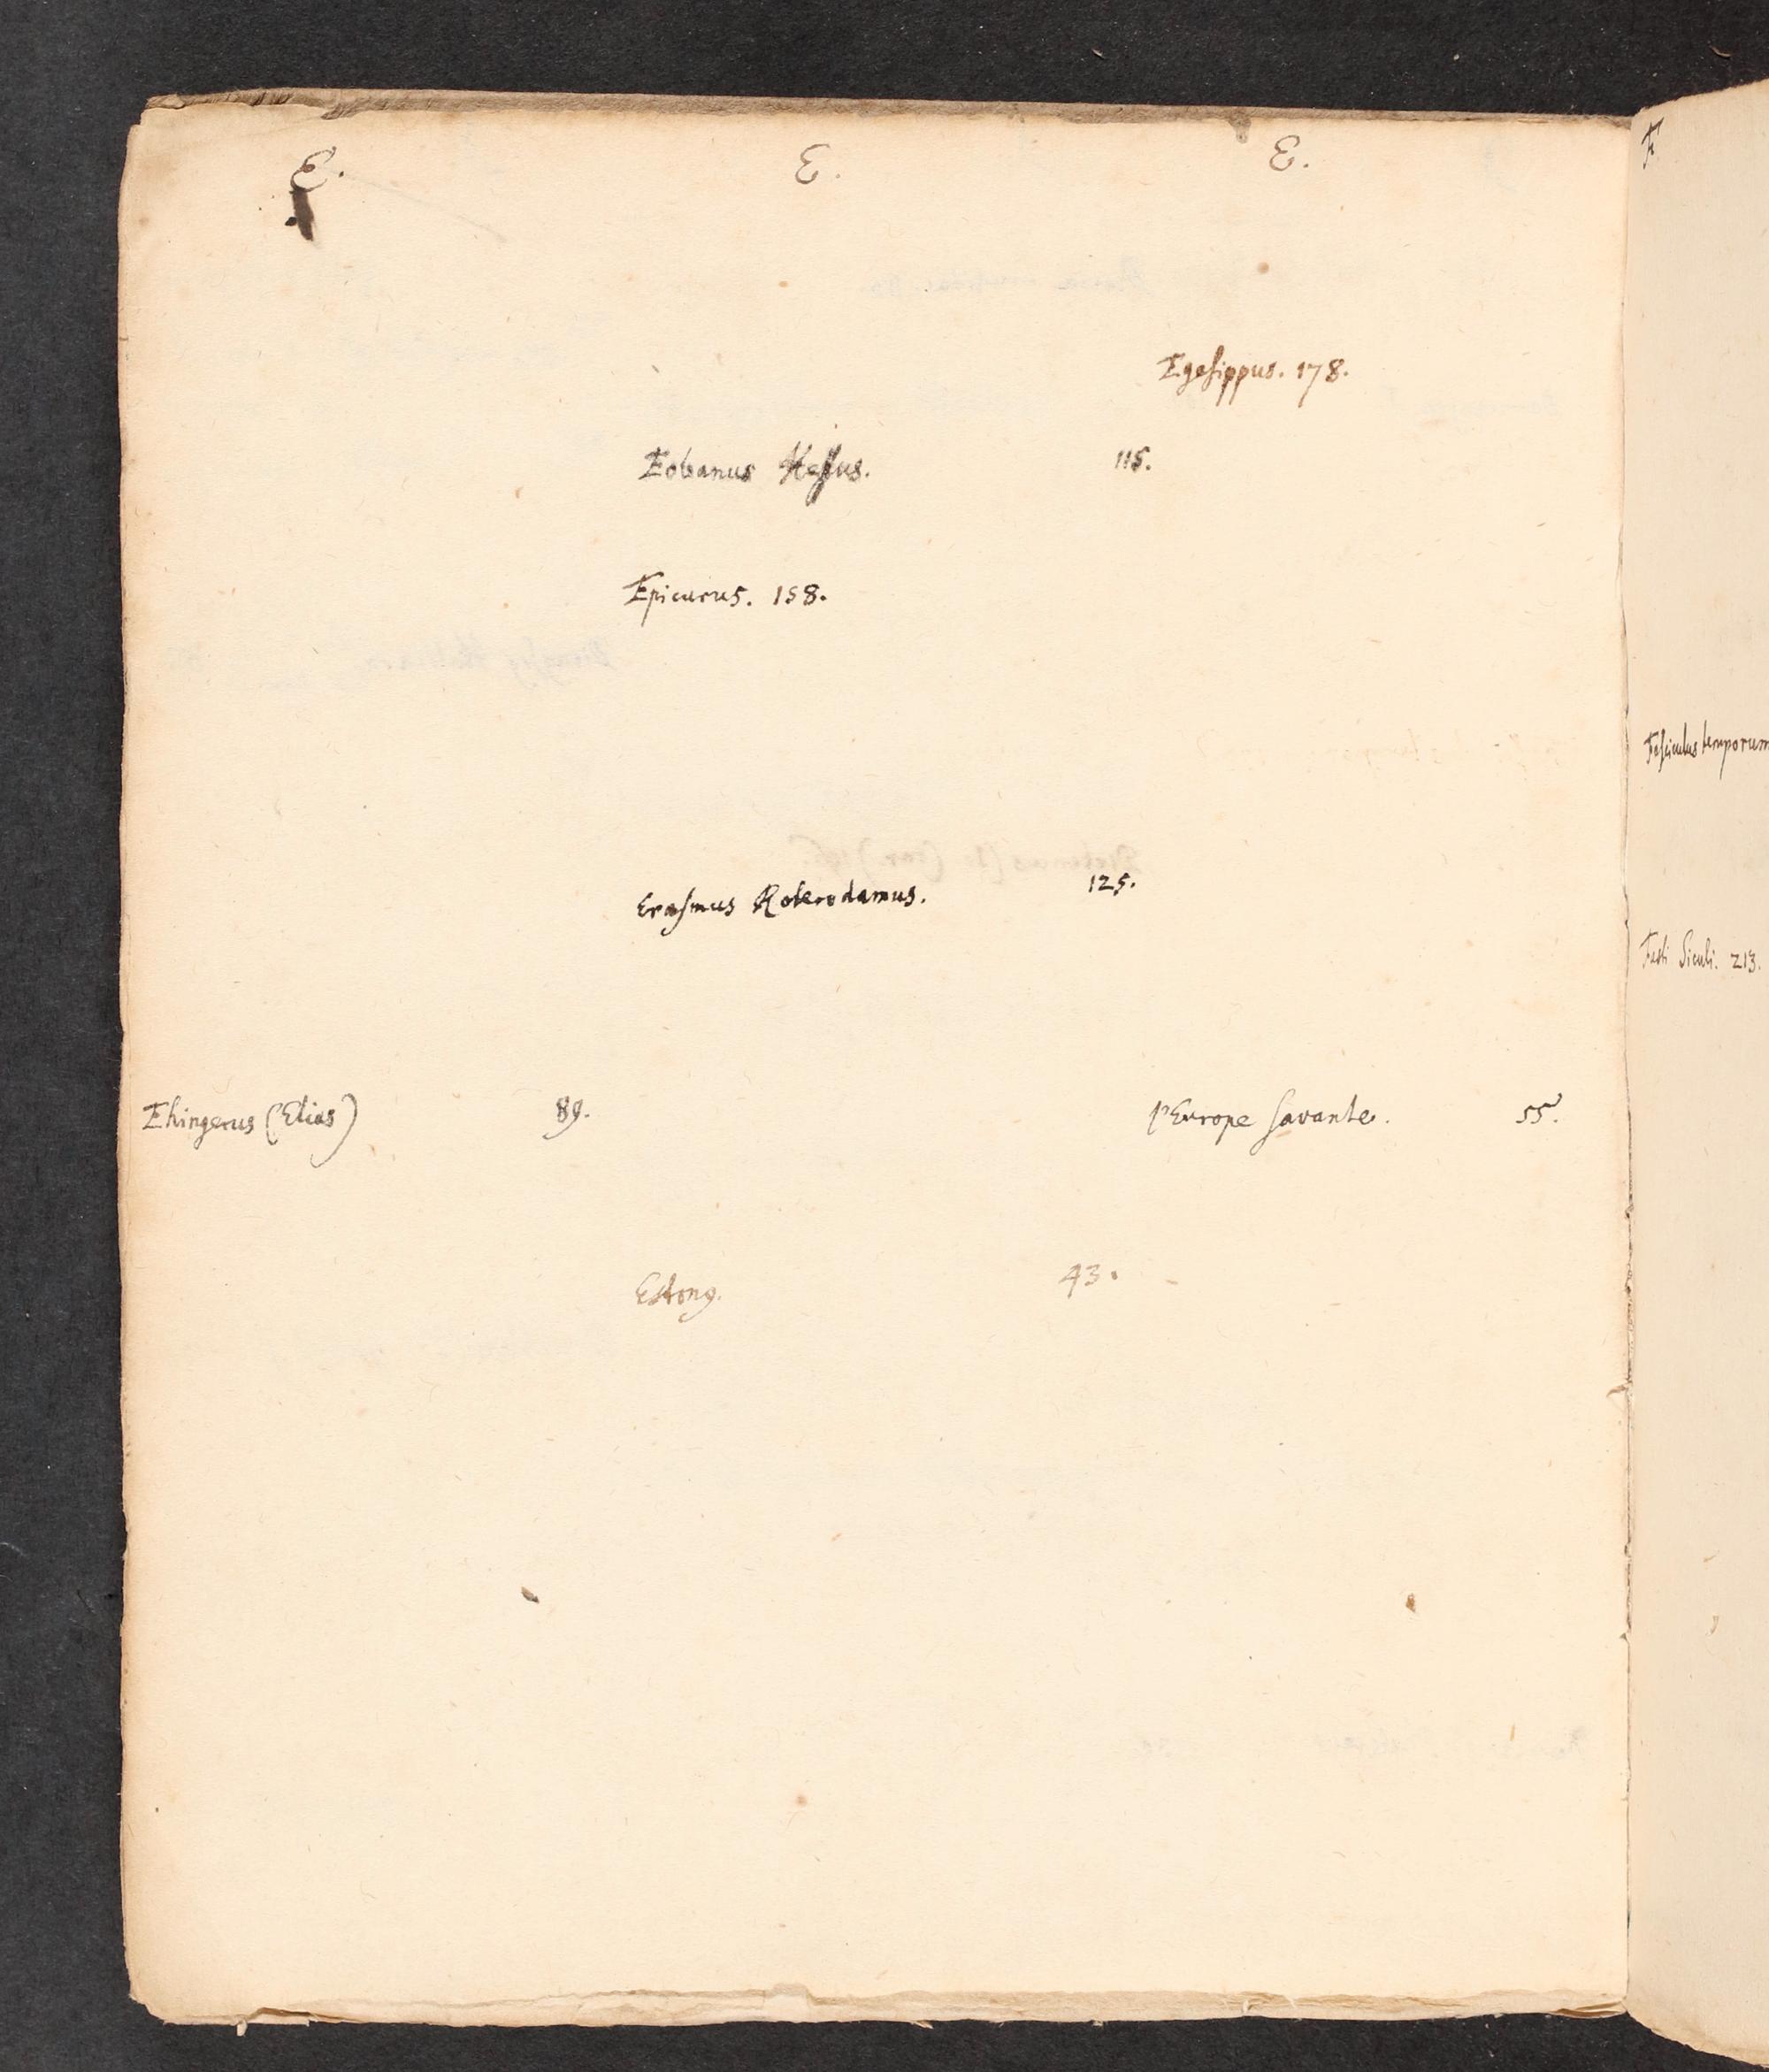 E. E. E.
Egesippus. 178.
Eobanus Hessus. 115.
Epicurus. 158.
Erasmus Roterodamus. 125.
Ehingerus (Elias) 89.
l'Europe savante. 55.
43.
F
Fasciculus temporum
Fasti Siculi. 213.